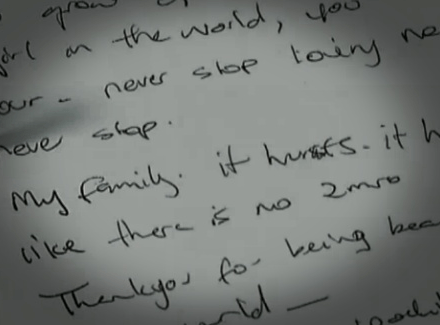 grow
girl in the world, you
our - never stop
never stop.
My family. it hurts. it h
like there is no 2mro
Thankyou for being bea
rld —